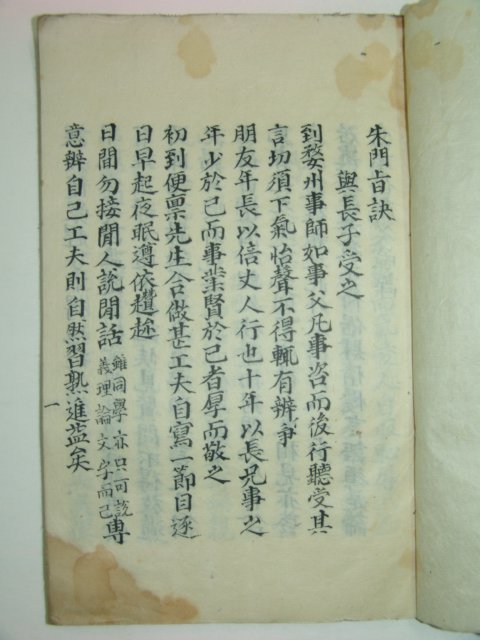 朱門旨訣
與長子受之
到婺州事師如事父凡事咨而後行聽受其
言切須下氣怡聲不得輒有辨爭
朋友年長以倍丈人行也十年以長兄事之
年少於己而事業賢於己者厚而敬之
初到便稟先生合做甚工夫自寫一節目逐
日早起夜眠遵依儹趂
日間勿接閒人說閒話雖同學亦只可說義理論文字而已專
意辦自己工夫則自然習熟進益矣
一